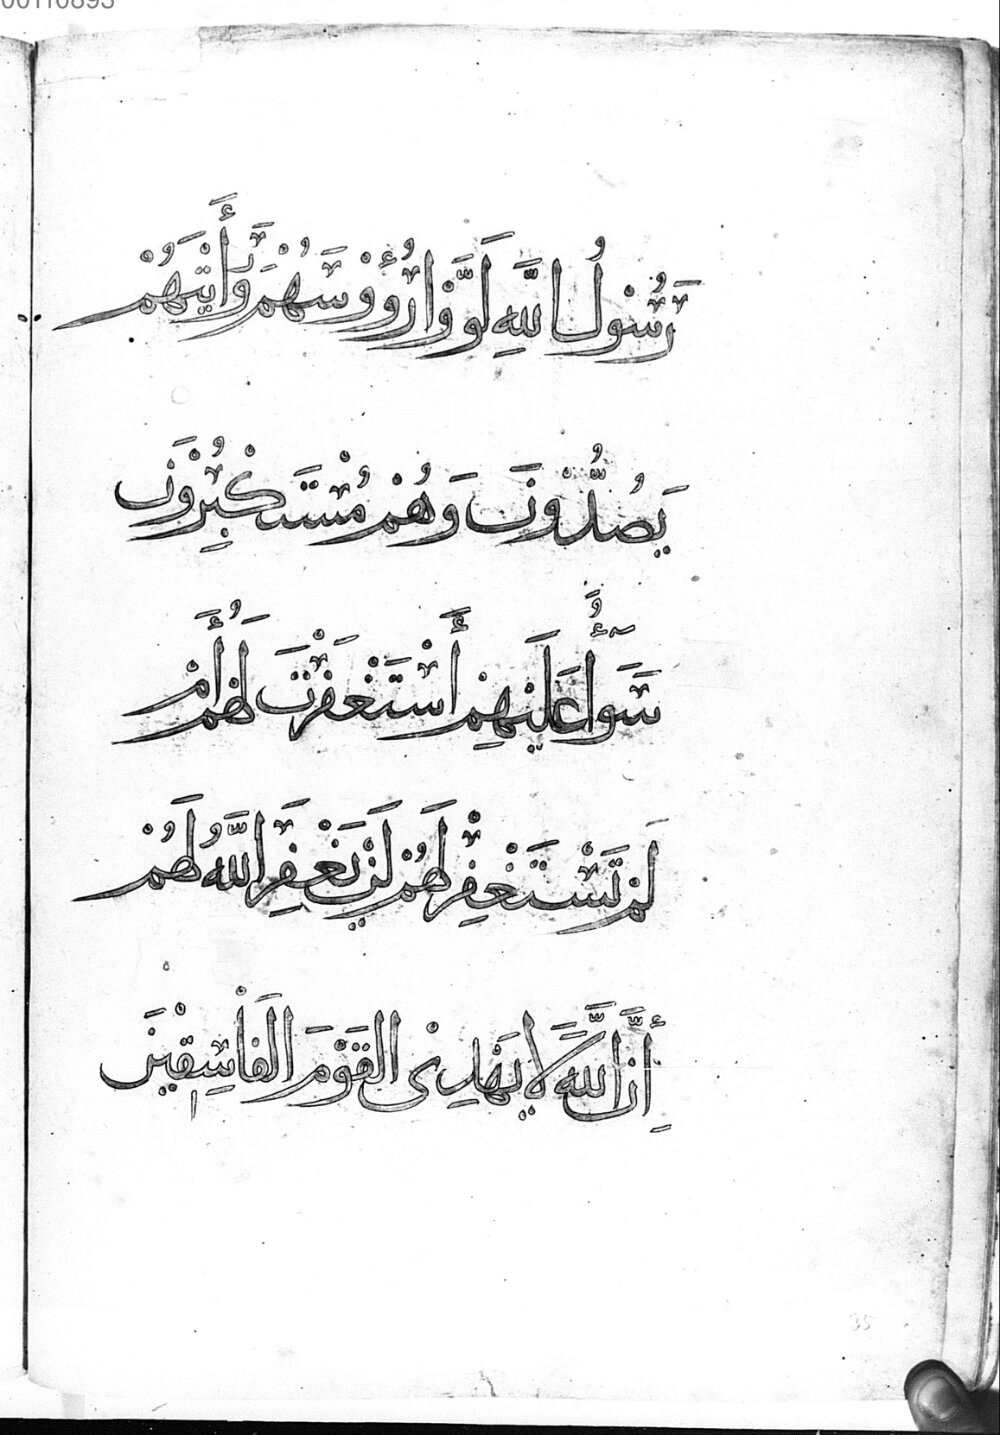 00110893
رَسُولُ اللَّهِ لَوَّوْا رُؤُوْسَهُمْ وَرَأَيْتَهُمْ
يَصُدُّوْنَ وَهُمْ مُسْتَكْبِرُوْنَ
سَوَآءٌ عَلَيْهِمْ أَسْتَغْفَرْتَ لَهُمْ أَمْ
لَمْ تَسْتَغْفِرْ لَهُمْ لَنْ يَغْفِرَ اللَّهُ لَهُمْ
إِنَّ اللَّهَ لَا يَهْدِى الْقَوْمَ الْفَاسِقِيْنَ
35